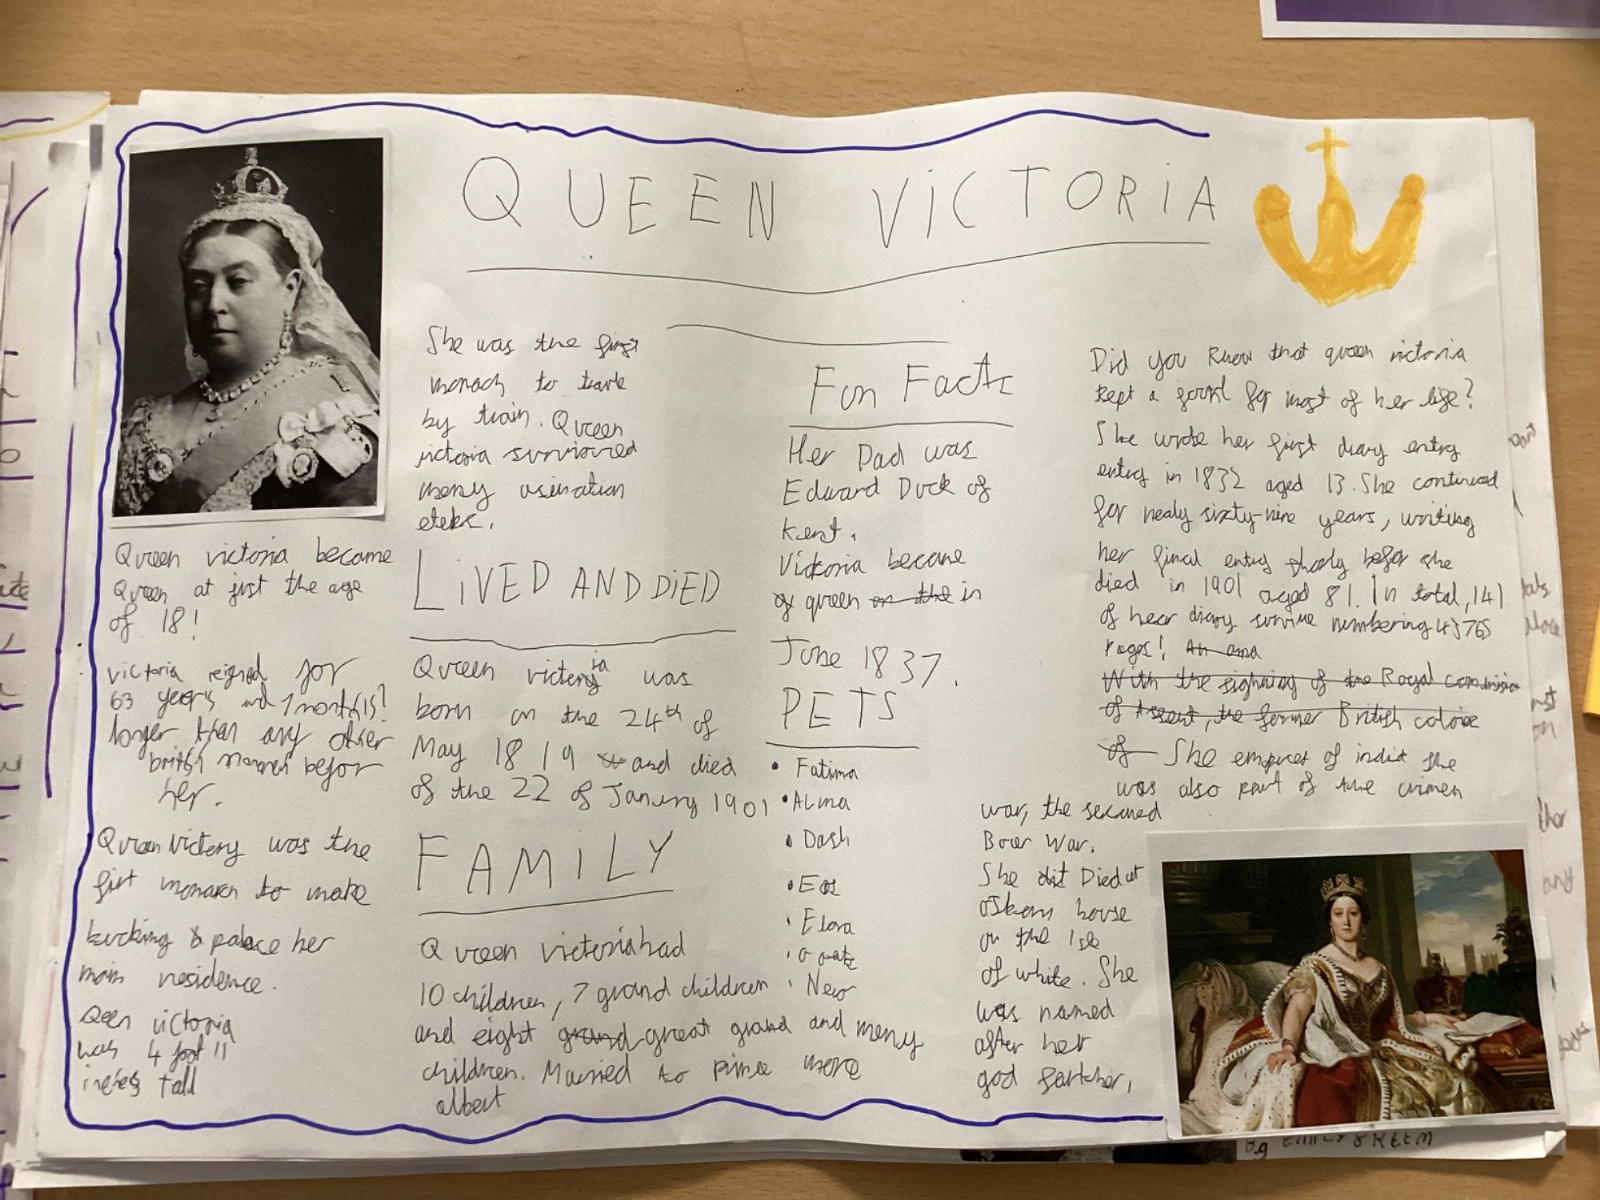 QUEEN ViCTORiA
She was the first
monach to
by train. Queen
victoria survioved
meny asination
Queen victoria became
Queen at just the age
of 18!
victoria reigned for
63 years and 7 month(s)!
longer than any other
british befor
her.
Queen Victery was the
first monarch to make
bucking palace her
main residence.
Qeen victoria
was 4 foot 11
inches tall
LiVED AND DiED
Queen victeryia was
born on the 24th of
May 1819 and died
of the 22 of Janury 1901
FAMILY
Queen victoria had
10 children, 7 grand children
and eight grand great grand and meny
children. Married to prince more
albert
Fun Facts
Her Dad was
Edward Duck of
Kent.
Victoria became
of queen on the in
June 1837.
PETS
• Fatima
• Alma
• Dash
• Eos
• Elora
• goats
• Nero
Did you know that queen victoria
kept a for most of her life?
She wrote her first diary entry
entry in 1832 aged 13. She continued
for nealy sixty-nine years, writing
her final entry shortly befor she
died in 1901 aged 81. In total, 141
of hear diary survive numbering 43765
Pages! An ama
With the sighning of the Royal commission
of Assent, the former British colonie
of She empires of india She
was also part of the crimen
war, the secaned
Boer War.
She did Died at
house
on the Isle
of white. She
was named
after her
god farther,
By EMILY